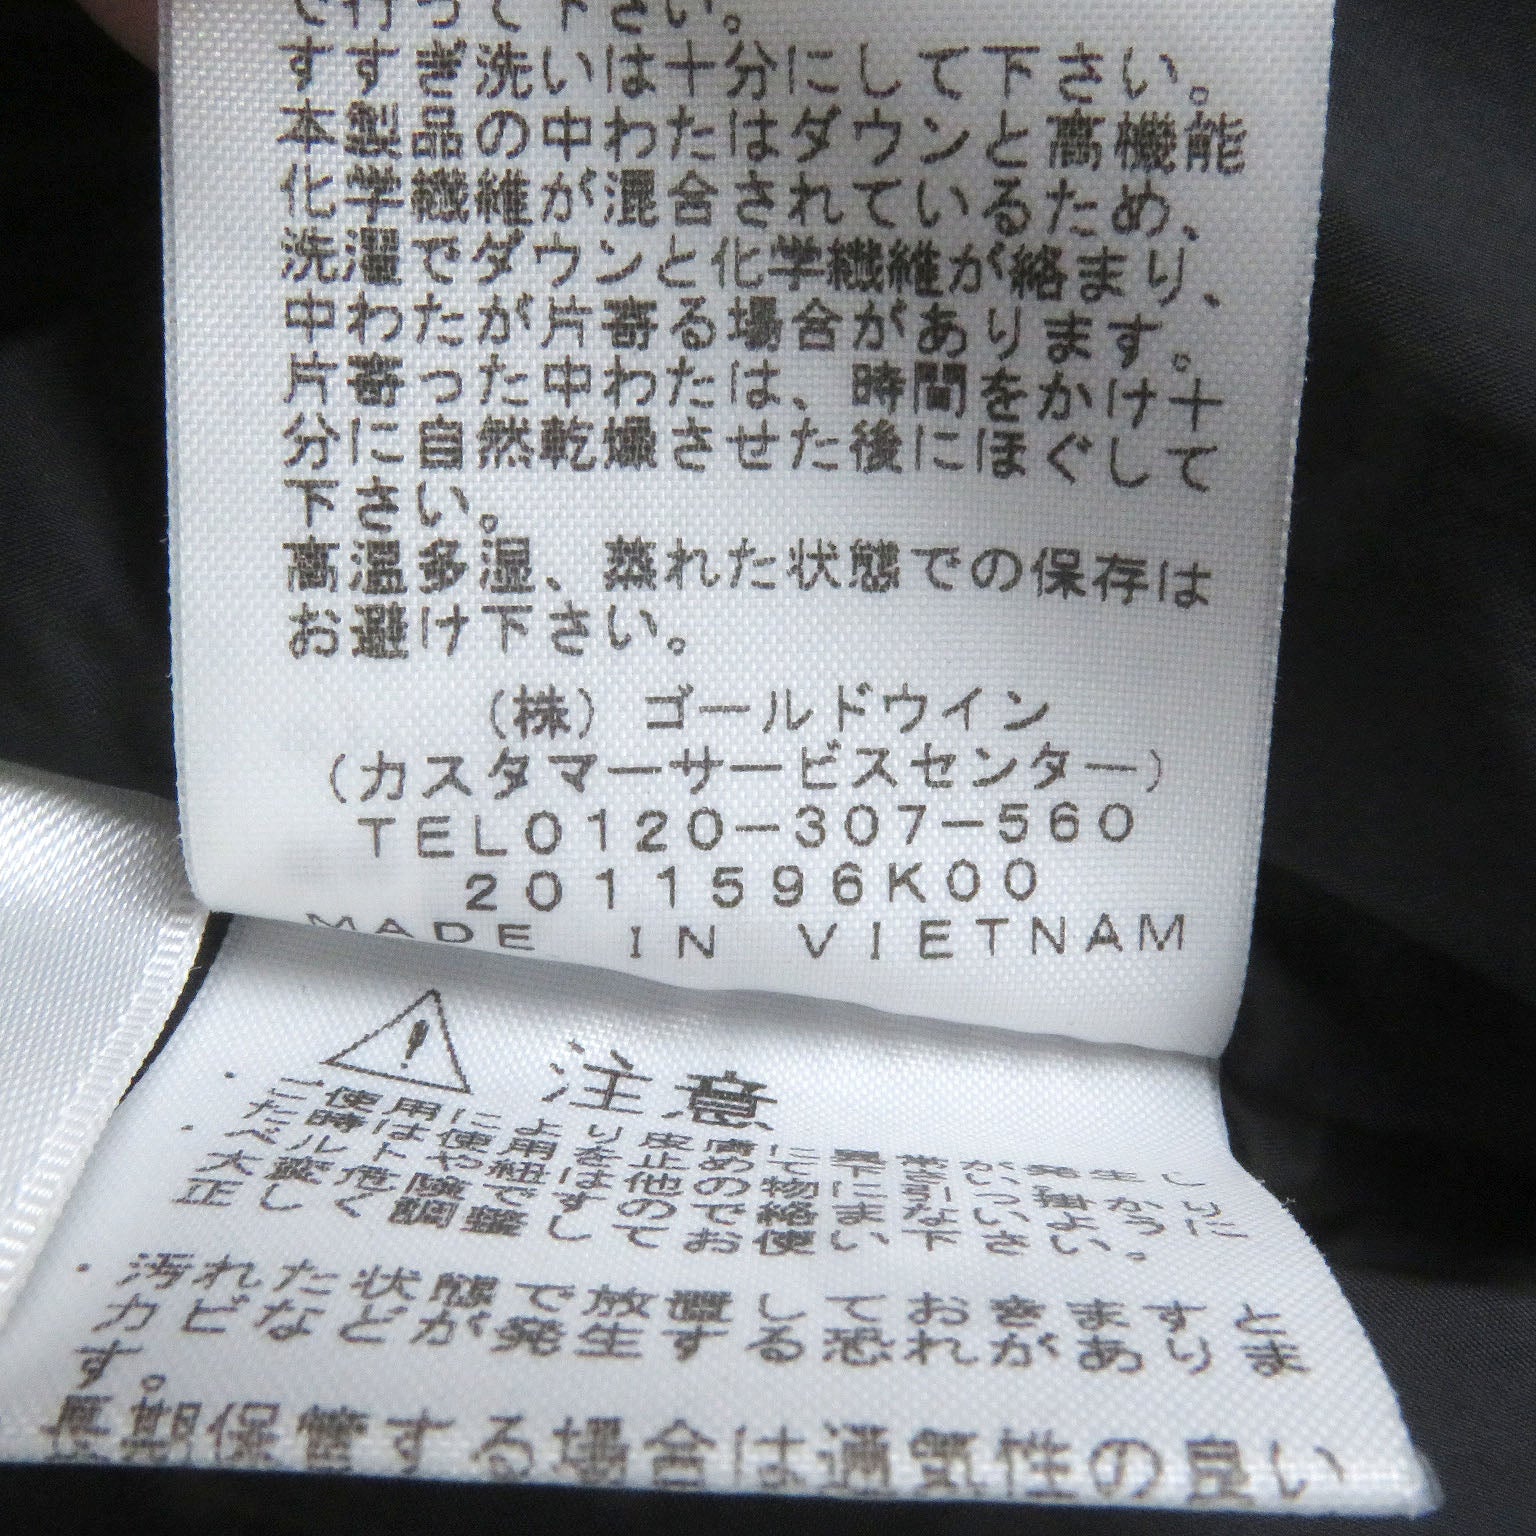 で行って下さい。
すすぎ洗いは十分にして下さい。
本製品の中わたはダウンと高機能
化学繊維が混合されているため、
洗濯でダウンと化学繊維が絡まり、
中わたが片寄る場合があります。
片寄った中わたは、時間をかけ十
分に自然乾燥させた後にほぐして
下さい。
高温多湿、蒸れた状態での保存は
お避け下さい。
(株)ゴールドウイン
(カスタマーサービスセンター)
TEL0120-307-560
2011596K00
MADE IN VIETNAM
注意
・ご使用により皮膚に異常が発生し
た時は使用を止めて下さい。
・ベルトや紐は他の物に引っ掛かり
大変危険ですので絡まないように
正しく調整してお使い下さい。
・汚れた状態で放置しておきますと
カビなどが発生する恐れがありま
す。
長期保管する場合は通気性の良い